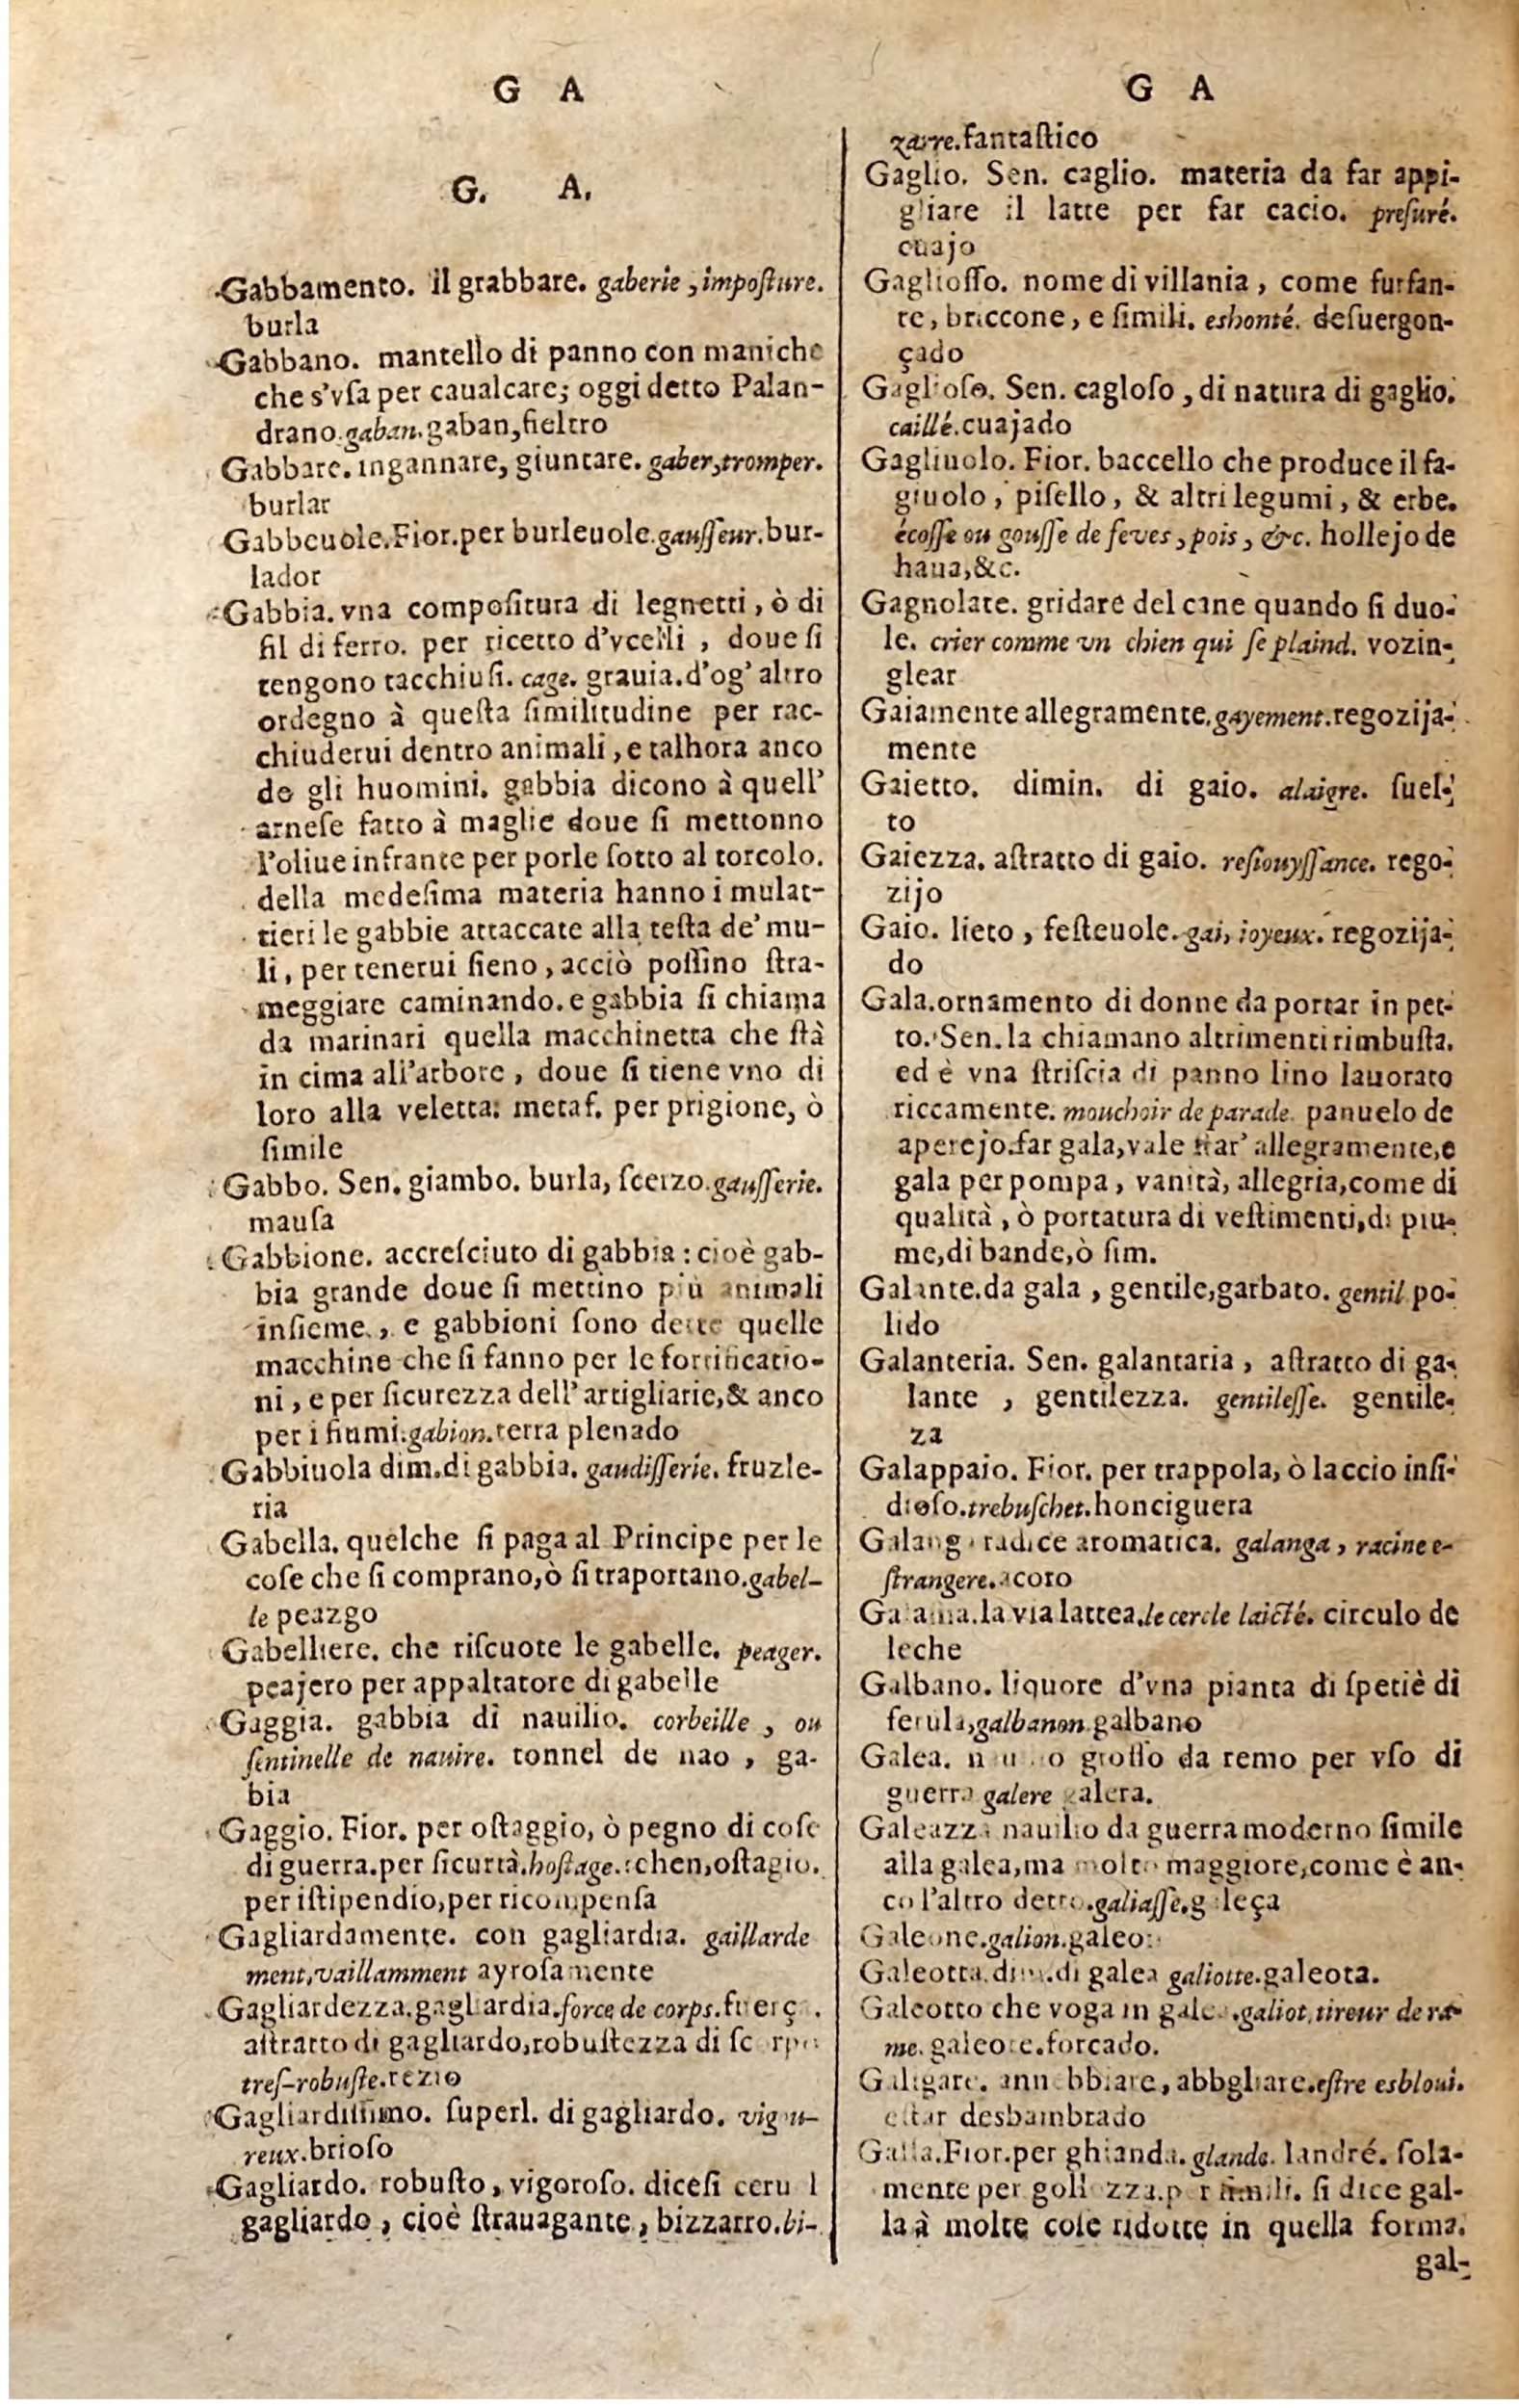 G A
G. A.
Gabbamento. il grabbare. gaberie, impoſture.
burla
Gabbano. mantello di panno con maniche
che s'vſa per caualcare; oggi detto Palan-
drano. gaban. gaban, fieltro
Gabbare. ingannare, giuntare. gaber, tromper.
burlar
Gabbeuole. Fior. per burleuole. gauſſeur. bur-
lador
Gabbia. vna compoſitura di legnetti, ò di
fil di ferro. per ricetto d'vcelli, doue ſi
tengono racchiuſi. cage. grauia. d'og' altro
ordegno à queſta ſimilitudine per rac-
chiuderui dentro animali, e talhora anco
de gli huomini. gabbia dicono à quell'
arneſe fatto à maglie doue ſi mettonno
l'oliue infrante per porle ſotto al torcolo.
della medeſima materia hanno i mulat-
tieri le gabbie attaccate alla teſta de' mu-
li, per tenerui fieno, acciò poſſino ſtra-
meggiare caminando. e gabbia ſi chiama
da marinari quella macchinetta che ſtà
in cima all'arbore, doue ſi tiene vno di
loro alla veletta: metaf. per prigione, ò
ſimile
Gabbo. Sen. giambo. burla, ſcerzo. gauſſerie.
mauſa
Gabbione. accreſciuto di gabbia: cioè gab-
bia grande doue ſi mettino più animali
inſieme, e gabbioni ſono dette quelle
macchine che ſi fanno per le fortificatio-
ni, e per ſicurezza dell' artigliarie, & anco
per i fiumi. gabion. terra plenado
Gabbiuola dim. di gabbia. gaudiſſerie. fruzle-
ria
Gabella. quelche ſi paga al Principe per le
coſe che ſi comprano, ò ſi traportano. gabel-
le peazgo
Gabelliere. che riſcuote le gabelle. peager.
peajero per appaltatore di gabelle
Gaggia. gabbia di nauilio. corbeille, ou
ſentinelle de nauire. tonnel de nao, ga-
bia
Gaggio. Fior. per oſtaggio, ò pegno di coſe
di guerra. per ſicurtà. hoſtage. rehen, oſtagio.
per iſtipendio, per ricompenſa
Gagliardamente. con gagliardia. gaillarde
ment, vaillamment ayroſamente
Gagliardezza. gagliardia. force de corps. fuerça.
aſtratto di gagliardo, robuſtezza di
treſ-robuſte. rezio
Gagliardiſſimo. ſuperl. di gagliardo. vigou-
reux. brioſo
Gagliardo. robuſto, vigoroſo. diceſi
gagliardo, cioè ſtrauagante, bizzarro. bi-
G A
zarre. fantaſtico
Gaglio. Sen. caglio. materia da far appi-
gliare il latte per far cacio. preſuré.
cuajo
Gaglioſſo. nome di villania, come furfan-
te, briccone, e ſimili. eshonté. deſuergon-
çado
Gaglioſo. Sen. cagloſo, di natura di gaglio.
caillé. cuajado
Gagliuolo. Fior. baccello che produce il fa-
giuolo, piſello, & altri legumi, & erbe.
écoſſe ou gouſſe de feves, pois, &c. hollejo de
haua, &c.
Gagnolare. gridare del cane quando ſi duo-
le. crier comme vn chien qui ſe plaind. vozin-
glear
Gaiamente allegramente. gayement. regozija-
mente
Gaietto. dimin. di gaio. alaigre. ſuel-
to
Gaiezza. aſtratto di gaio. reſiouyſſance. rego-
zijo
Gaio. lieto, feſteuole. gai, ioyeux. regozija-
do
Gala. ornamento di donne da portar in pet-
to. Sen. la chiamano altrimenti rimbuſta.
ed è vna ſtriſcia di panno lino lauorato
riccamente. mouchoir de parade. panuelo de
aperejo. far gala, vale ſtar' allegramente, e
gala per pompa, vanità, allegria, come di
qualità, ò portatura di veſtimenti, di piu-
me, di bande, ò ſim.
Galante. da gala, gentile, garbato. gentil po-
lido
Galanteria. Sen. galantaria, aſtratto di ga-
lante, gentilezza. gentileſſe. gentile-
za
Galappaio. Fior. per trappola, ò laccio inſi-
dioſo. trebuſchet. honciguera
Galanga radice aromatica. galanga, racine e-
ſtrangere. acoro
la via lattea. le cercle laicté. circulo de
leche
Galbano. liquore d'vna pianta di ſpetiè di
ferula, galbanon. galbano
Galea. nauilio groſſo da remo per vſo di
guerra galere galera.
Galeazza nauilio da guerra moderno ſimile
alla galea, ma molto maggiore, come è an-
co l'altro detto. galiaſſe. galeça
Galeone. galion. galeon
Galeotta. dim. di galea galiotte. galeota.
Galeotto che voga in galea. galiot, tireur de ra-
me. galeote. forcado.
Galigare. annebbiare, abbgliare. eſtre esbloui.
eſtar desbambrado
Galla. Fior. per ghianda. glande. landré. ſola-
mente per ſimili. ſi dice gal-
la à molte coſe ridotte in quella forma.
gal-